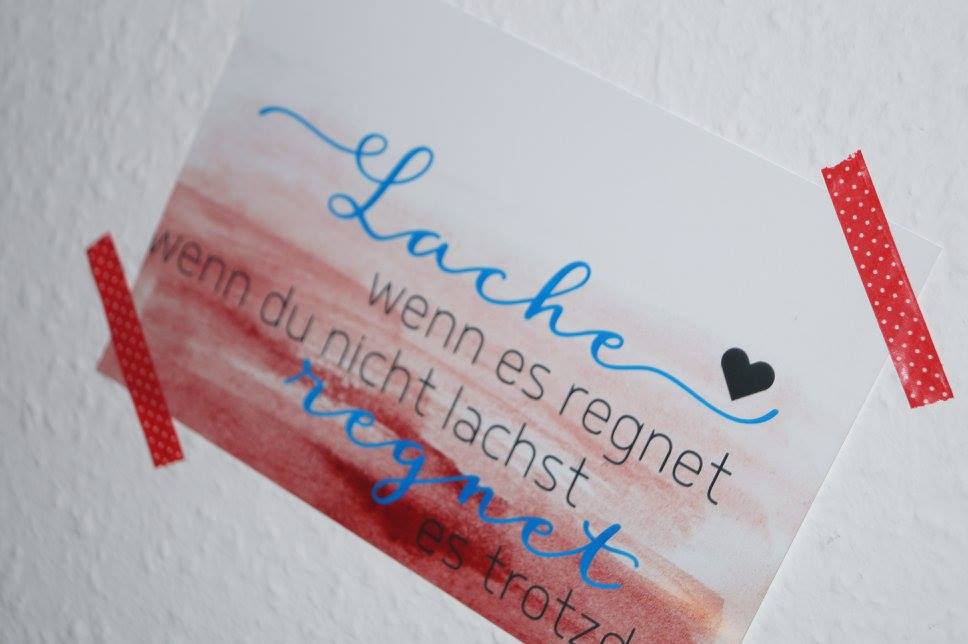 Lache
wenn es regnet
wenn du nicht lachst
regnet
es trotzd